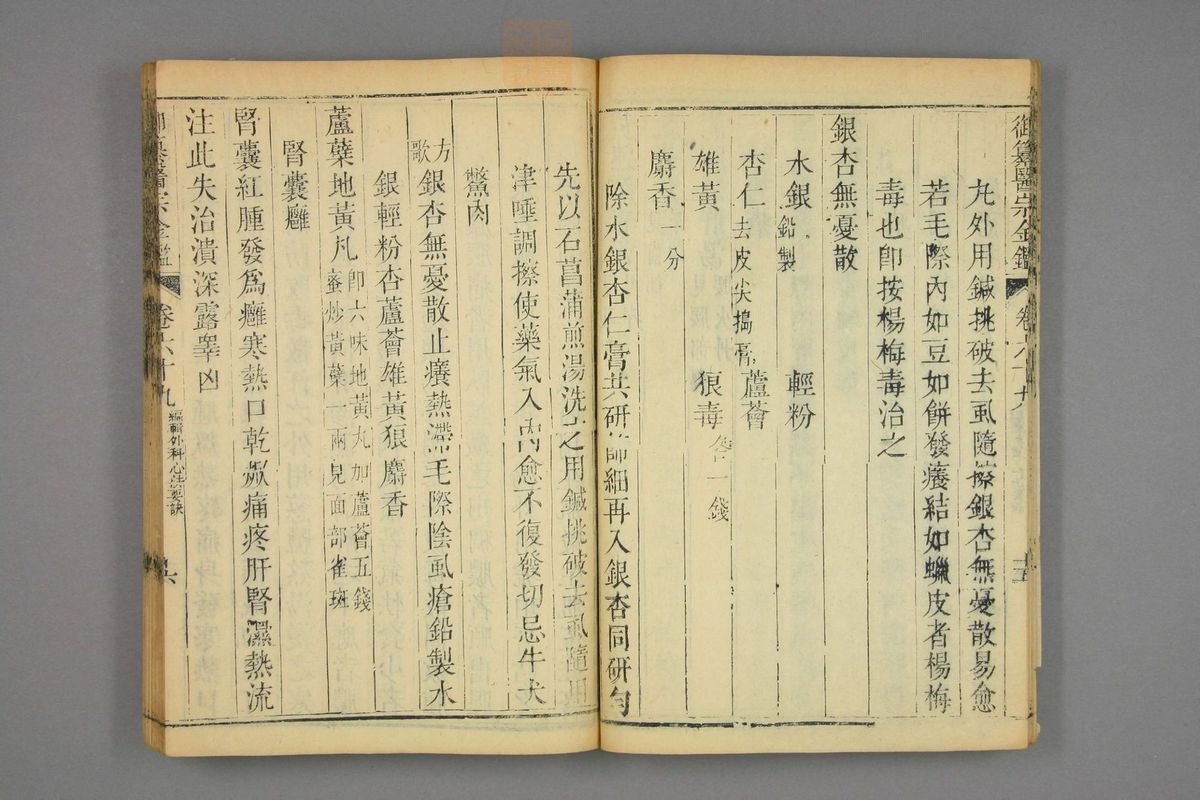 御纂醫宗金鑑 卷六十九 十五
丸外用鍼挑破去虱隨擦銀杏無憂散易愈
若毛際內如豆如餅發癢結如蠟皮者楊梅
毒也卽按楊梅毒治之
銀杏無憂散
水銀鉛製 輕粉
杏仁去皮尖搗膏 蘆薈
雄黃 狼毒各一錢
麝香一分
除水銀杏仁膏共研篩細再入銀杏同研勻
先以石菖蒲煎湯洗之用鍼挑破去虱隨用
津唾調擦使藥氣入內愈不復發切忌牛犬
鱉肉
方歌 銀杏無憂散止癢熱滯毛際陰虱瘡鉛製水
銀輕粉杏蘆薈雄黃狼麝香
蘆蘗地黃丸卽六味地黃丸加蘆薈五錢
蜜炒黃蘗一兩見面部雀斑
腎囊癰
腎囊紅腫發爲癰寒熱口乾焮痛疼肝腎濕熱流
注此失治潰深露睾凶
卷六十九 編輯外科心法要訣